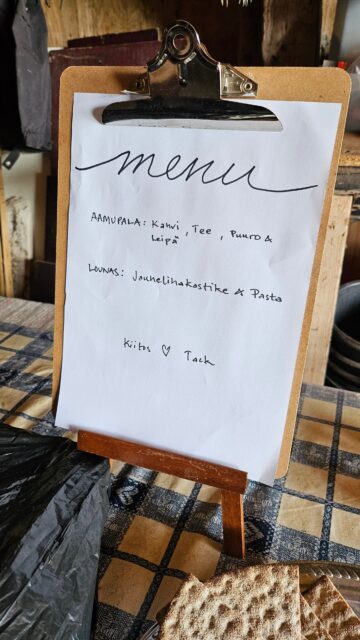 menu
AAMUPALA: Kahvi, Tee, Puuro &
Leipä
LOUNAS: Jauhelihakastike & Pasta
Kiitos ♡ Tack